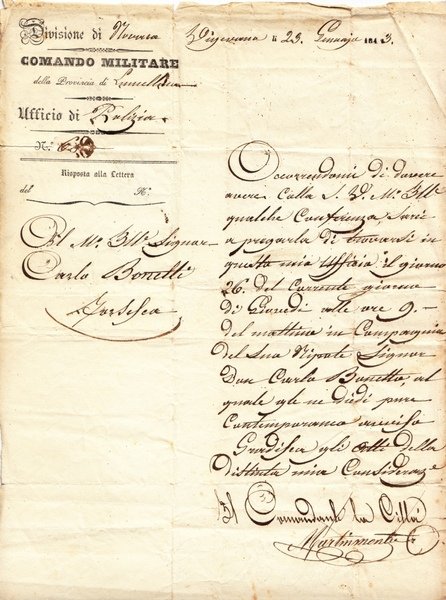 Divisione di Novara
COMANDO MILITARE
della Provincia di Lomellina
Ufficio di Polizia
N.º
Risposta alla Lettera
del N.º
Vigevano li 23. Gennajo 1843.
Al M.º Ill. Signor
Carlo Bonetti
Occorrendomi di dovere
avere Colla S. V. M.º Ill.
qualche Conferenza, sarei
a pregarla di trovarsi in
questo mio Uffizio il giorno
26. del Corrente giorno
di Giovedì alle ore 9.
del mattino in Compagnia
del Suo Nipote Signor
Don Carlo Bonetto, al
quale gle ne diedi pure
Contemporaneo avviso
Gradisca gli Atti della
Distinta mia Consideraze
Il Comandante la Città
Martinmonte